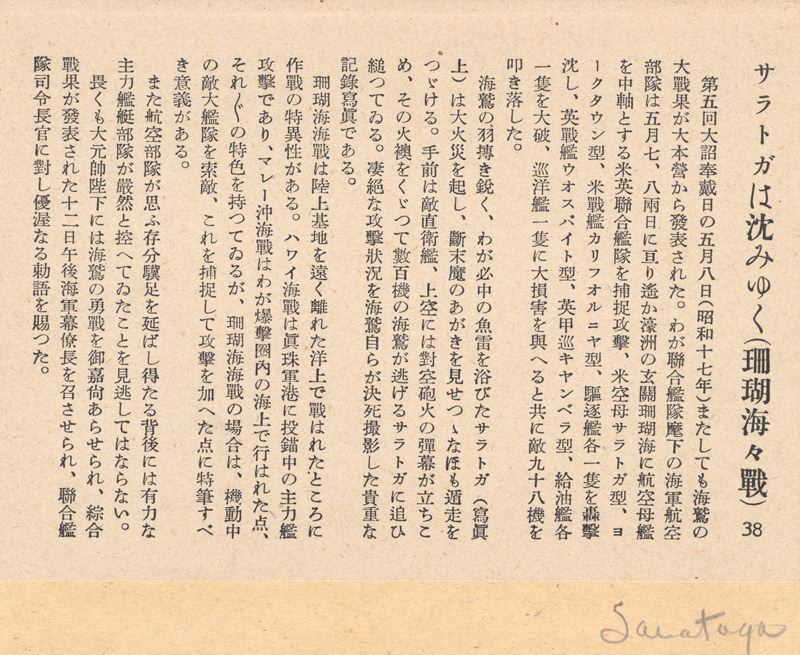 サラトガは沈みゆく(珊瑚海々戰) 38
第五回大詔奉戴日の五月八日(昭和十七年)またしても海鷲の
大戰果が大本營から發表された。わが聯合艦隊麾下の海軍航空
部隊は五月七、八兩日に亙り遙か濠洲の玄關珊瑚海に航空母艦
を中軸とする米英聯合艦隊を捕捉攻擊、米空母サラトガ型、ヨ
ークタウン型、米戰艦カリフオルニヤ型、驅逐艦各一隻を轟擊
沈し、英戰艦ウオスパイト型、英甲巡キヤンベラ型、給油艦各
一隻を大破、巡洋艦一隻に大損害を與へると共に敵九十八機を
叩き落した。
海鷲の羽搏き銳く、わが必中の魚雷を浴びたサラトガ(寫眞
上)は大火災を起し、斷末魔のあがきを見せつゝなほも遁走を
つゞける。手前は敵直衛艦、上空には對空砲火の彈幕が立ちこ
め、その火襖をくゞつて數百機の海鷲が逃げるサラトガに追ひ
縋つてゐる。凄絕な攻擊狀況を海鷲自らが決死撮影した貴重な
記錄寫眞である。
珊瑚海海戰は陸上基地を遠く離れた洋上で戰はれたところに
作戰の特異性がある。ハワイ海戰は眞珠軍港に投錨中の主力艦
攻擊であり、マレー沖海戰はわが爆擊圈內の海上で行はれた点、
それ〴〵の特色を持つてゐるが、珊瑚海海戰の場合は、機動中
の敵大艦隊を索敵、これを捕捉して攻擊を加へた点に特筆すべ
き意義がある。
また航空部隊が思ふ存分驥足を延ばし得たる背後には有力な
主力艦艇部隊が嚴然と控へてゐたことを見逃してはならない。
畏くも大元帥陛下には海鷲の勇戰を御嘉尙あらせられ、綜合
戰果が發表された十二日午後海軍幕僚長を召させられ、聯合艦
隊司令長官に對し優渥なる勅語を賜つた。
Saratoga